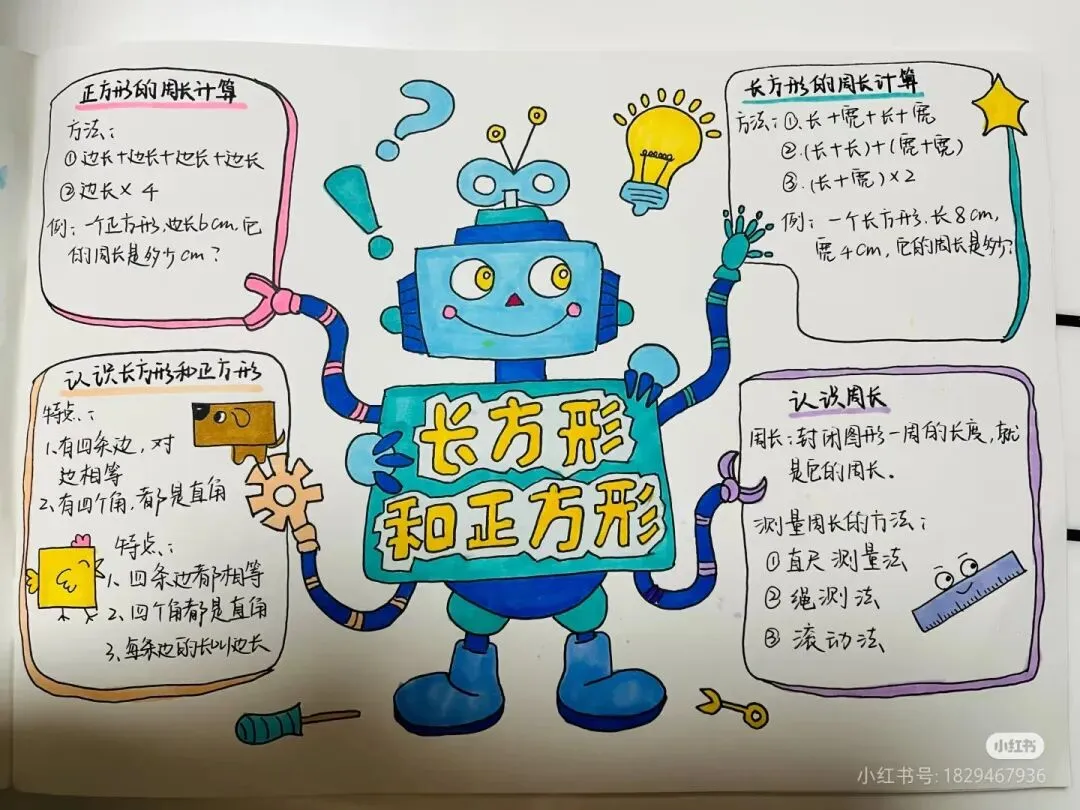 正方形的周长计算
方法：
①边长+边长+边长+边长
②边长×4
例：一个正方形，边长6cm，它
的周长是多少cm？
长方形的周长计算
方法：①.长+宽+长+宽
②.(长+长)+(宽+宽)
③.(长+宽)×2
例：一个长方形，长8cm，
宽4cm，它的周长是多少？
长方形
和正方形
认识长方形和正方形
特点：
1、有四条边，对
边相等
2、有四个角，都是直角
特点：
1、四条边都相等
2、四个角都是直角
3、每条边的长叫边长
认识周长
周长：封闭图形一周的长度，就
是它的周长。
测量周长的方法：
①直尺测量法
②绳测法
③滚动法
小红书
小红书号：1829467936